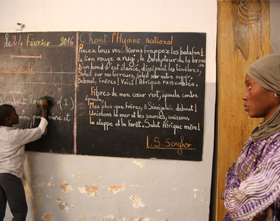 le 14 Février 2016
Chant : l'Hymne national
Pincez tous vos Koras frappez les balafons
Le lion rouge a rugi. Le Dompteur de la brousse
D'un bond s'est élancé, dissipant les ténèbres,
Soleil sur nos terreurs, soleil sur notre espoir.
Debout, Frères ! Voici l'Afrique rassemblée.
Fibres de mon cœur vert, épaule contre
Mes plus que frères, ô Sénégalais, debout !
Unissons la mer et les sources, unissons
la steppe et la forêt. Salut Afrique mère !
(1)
L. S. Senghor